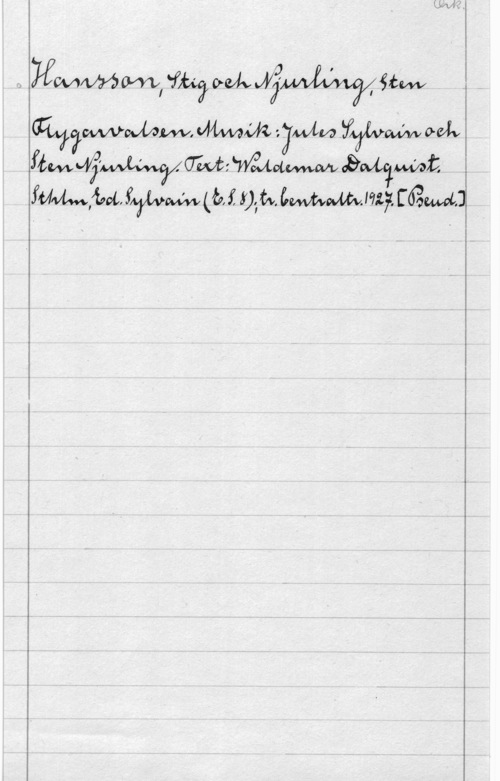 Ork.
Hansson, Stig och Njurling, Sten
Flygarvalsen. Musik: Jules Sylvain och
Sten Njurling. Text: Waldemar Dalquist.
Sthlm, Ed. Sylvain (E.S. 8); tr. Centraltr. 1927. [Pseud.]